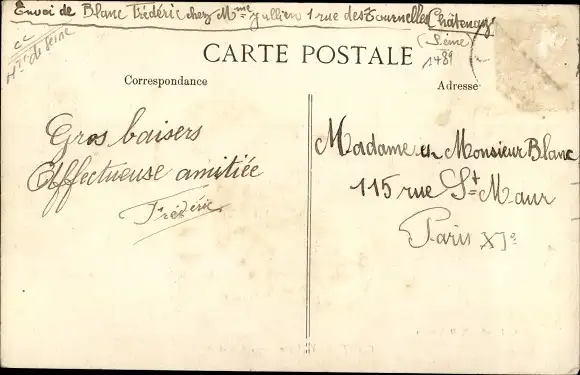 Envoi de Blanc Frédéric chez Mme Jullien 1 rue des Tournelles Châtenay
(Seine)
1489
Hts de Seine
CARTE POSTALE
Correspondance
Adresse
Gros baisers
Affectueuse amitiée
Frédéric
Madame et Monsieur Blanc
115 rue St Maur
Paris XIe